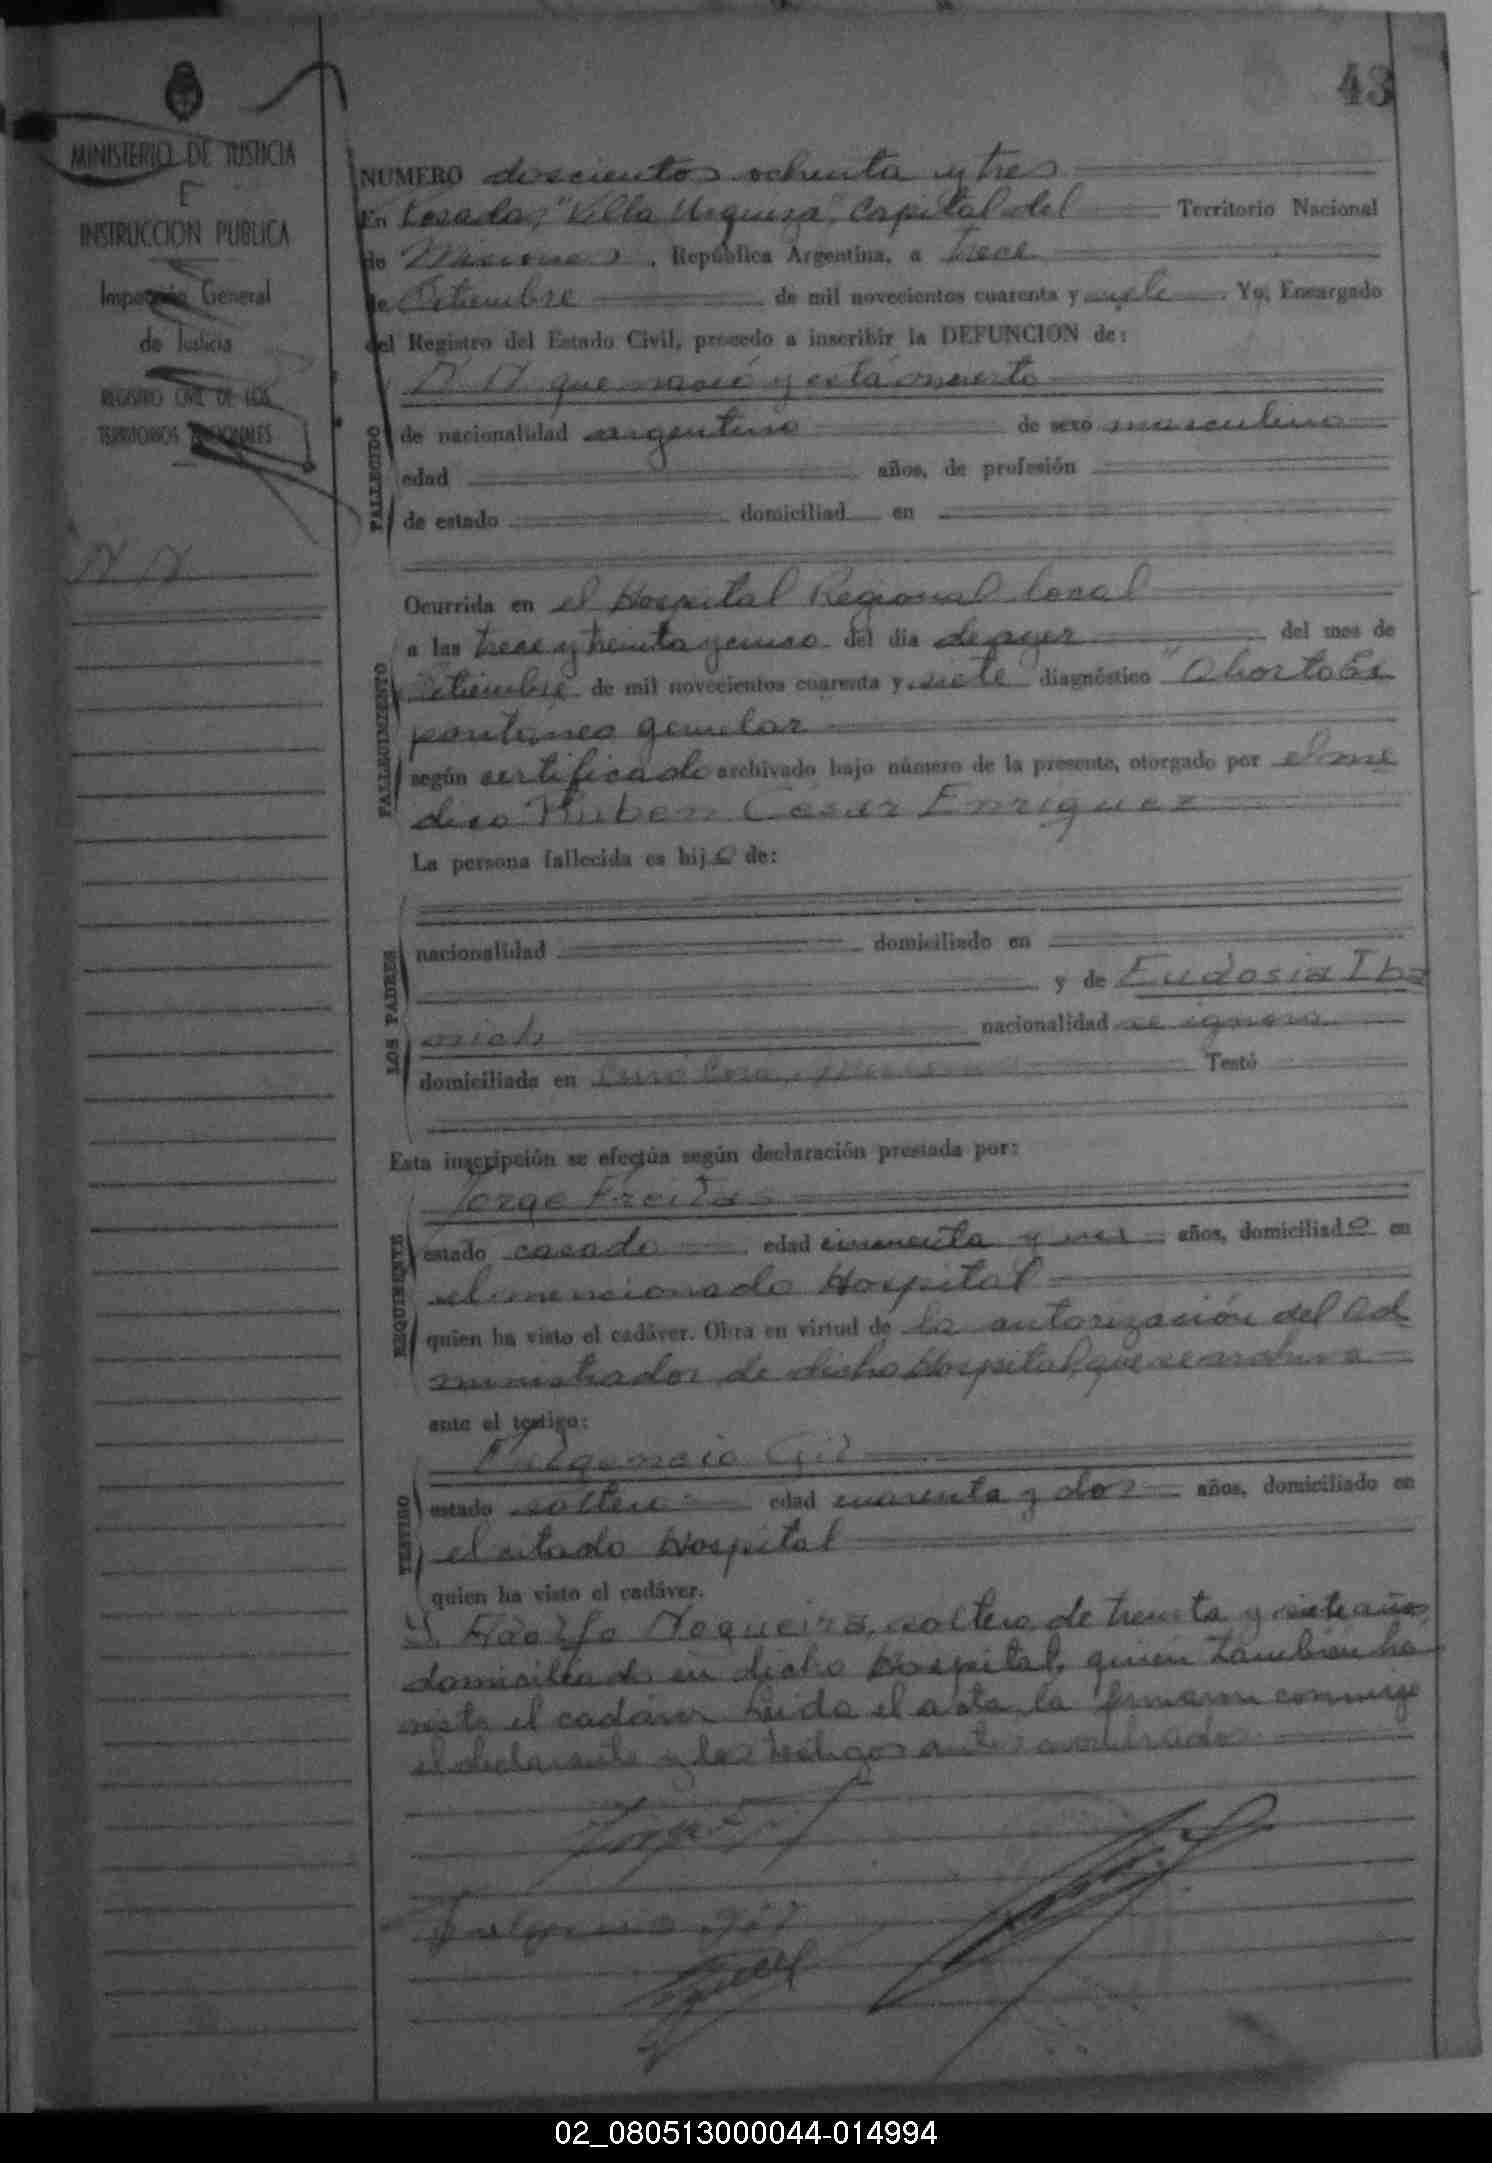 43
MINISTERIO DE JUSTICIA
E
INSTRUCCION PUBLICA
Inspección General
de Justicia
REGISTRO CIVIL DE LOS
TERRITORIOS NACIONALES
N N
NUMERO doscientos ochenta y tres
En Posadas, "Villa Urquiza", Capital del Territorio Nacional
de Misiones, República Argentina, a trece
de Setiembre de mil novecientos cuarenta y siete. Yo, Encargado
del Registro del Estado Civil, procedo a inscribir la DEFUNCION de:
N N que nació y está muerto
FALLECIDO
de nacionalidad argentino de sexo masculino
edad años, de profesión
de estado domiciliad en
Ocurrida en el Hospital Regional local
FALLECIMIENTO
a las trece y treinta y cinco del día de ayer del mes de
Setiembre de mil novecientos cuarenta y siete diagnóstico "Aborto Es
pontáneo gemelar
según certificado archivado bajo número de la presente, otorgado por el mé
dico Ruben César Enriguez
La persona fallecida es hijo de:
LOS PADRES
nacionalidad domiciliado en
y de Eudosia Iba
nich nacionalidad se ignora
domiciliada en Testó
Esta inscripción se efectúa según declaración prestada por:
Jorge Freitas
REQUIRENTE
estado casado edad cincuenta y años, domiciliado en
el mencionado Hospital
quien ha visto el cadáver. Obra en virtud de la autorización del Ad
ministrador de dicho Hospital, que se archiva
ante el testigo:
Fulgencio Gil
TESTIGO
estado soltero edad cuarenta y dos años, domiciliado en
el citado Hospital
quien ha visto el cadáver.
Y Adolfo Nogueira, soltero, de treinta y siete años,
domiciliado en dicho Hospital, quien también ha
visto el cadáver. Leida el acta, la firmaron conmigo
el declarante y los testigos antes nombrados.
Fulgencio Gil
02_080513000044-014994